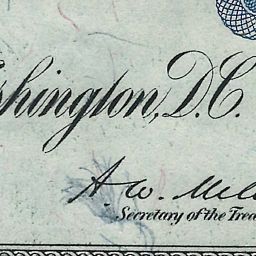 shington, D.C.
A. W. Mel
Secretary of the Trea